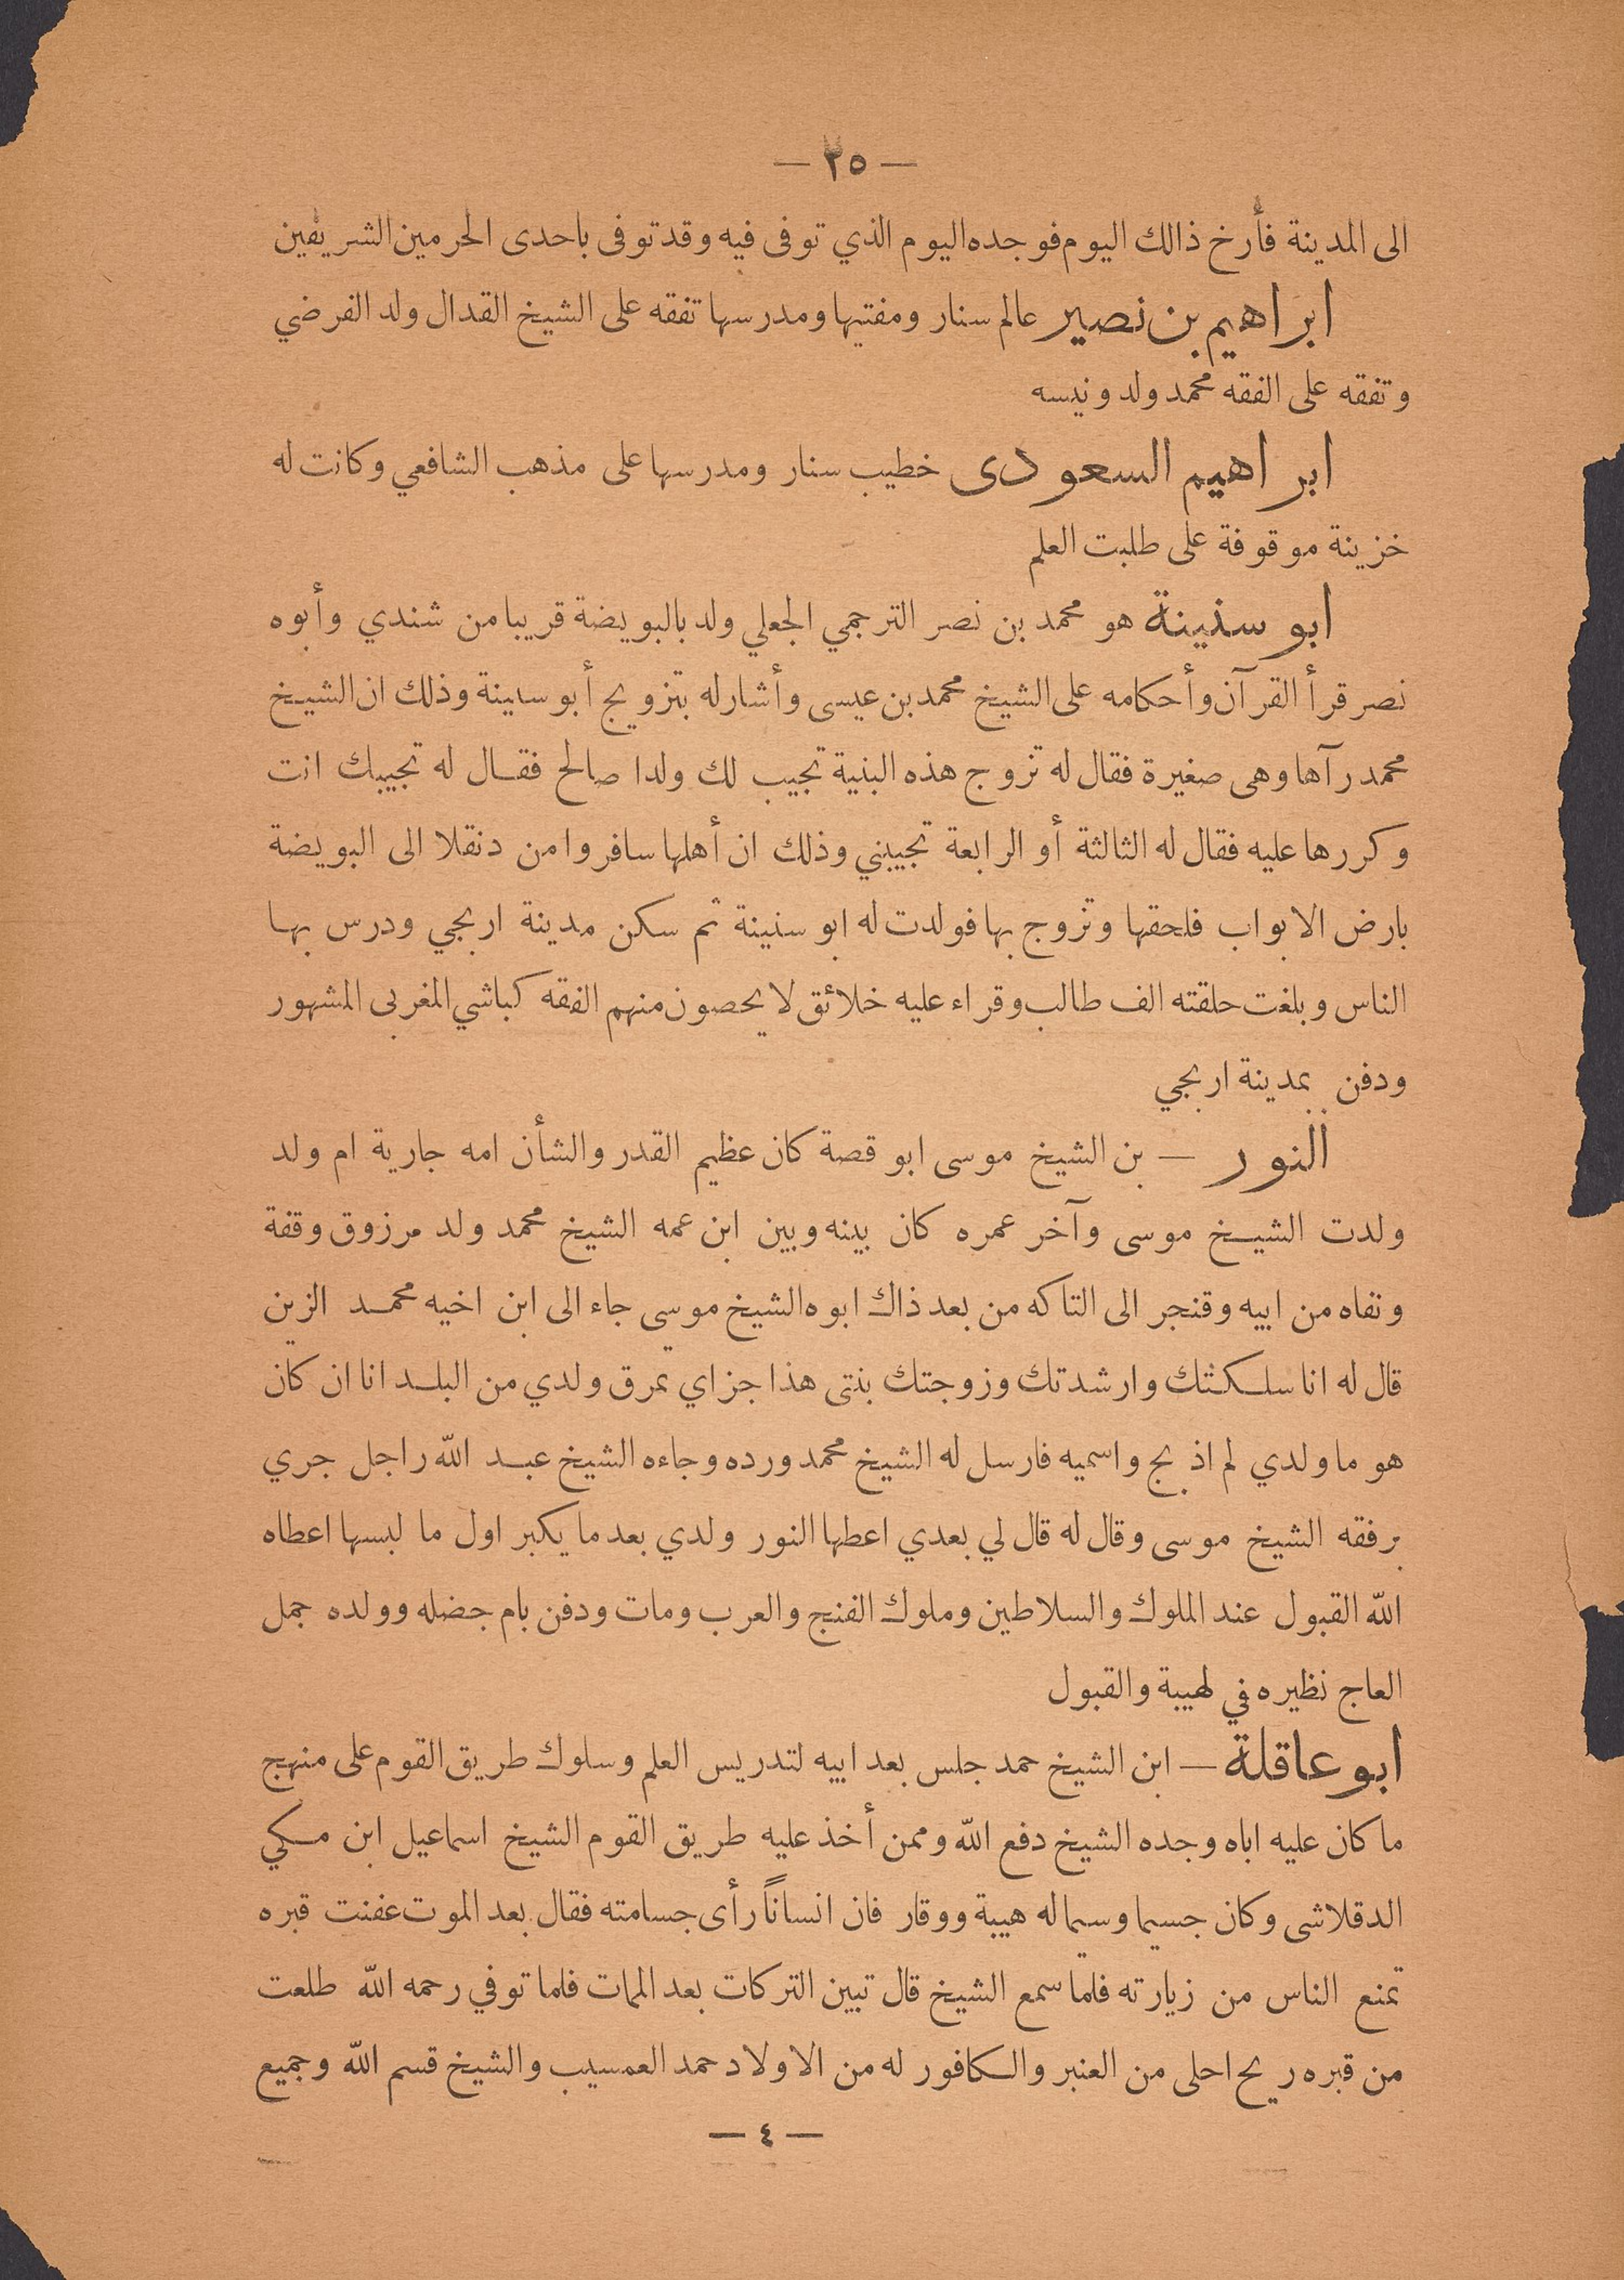 — ٢٥ —
الى المدينة فأرخ ذالك اليوم فوجده اليوم الذي توفى فيه وقد توفى باحدى الحرمين الشريفين
ابراهيم بن نصير عالم سنار ومفتيها ومدرسها تفقه على الشيخ القدال ولد الفرضي
وتفقه على الفقه محمد ولد ونيسه
ابراهيم السعودى خطيب سنار ومدرسها على مذهب الشافعي وكانت له
خزينة موقوفة على طلبت العلم
ابو سنينة هو محمد بن نصر الترجمي الجعلي ولد بالبويضة قريبا من شندي وأبوه
نصر قرأ القرآن وأحكامه على الشيخ محمد بن عيسى وأشار له بتزويج أبو سنينة وذلك ان الشيخ
محمد رآها وهى صغيرة فقال له تزوج هذه البنية تجيب لك ولدا صالح فقال له تجيبك انت
وكررها عليه فقال له الثالثة أو الرابعة تجيبني وذلك ان أهلها سافروا من دنقلا الى البويضة
بارض الابواب فلحقها وتزوج بها فولدت له ابو سنينة ثم سكن مدينة اربجي ودرس بها
الناس وبلغت حلقته الف طالب وقراء عليه خلائق لا يحصون منهم الفقه كباشي المغربى المشهور
ودفن بمدينة اربجي
النور — بن الشيخ موسى ابو قصة كان عظيم القدر والشأن امه جارية ام ولد
ولدت الشيخ موسى وآخر عمره كان بينه وبين ابن عمه الشيخ محمد ولد مرزوق وقفة
ونفاه من ابيه وقنجر الى التاكه من بعد ذاك ابوه الشيخ موسى جاء الى ابن اخيه محمد الزين
قال له انا سلكتك وارشدتك وزوجتك بنتى هذا جزاي تمرق ولدي من البلد انا ان كان
هو ما ولدي لم اذبح واسميه فارسل له الشيخ محمد ورده وجاءه الشيخ عبد الله راجل جري
برفقه الشيخ موسى وقال له قال لي بعدي اعطها النور ولدي بعد ما يكبر اول ما لبسها اعطاه
الله القبول عند الملوك والسلاطين وملوك الفنج والعرب ومات ودفن بام جضله وولده جمل
العاج نظيره في لهيبة والقبول
ابو عاقلة — ابن الشيخ حمد جلس بعد ابيه لتدريس العلم وسلوك طريق القوم على منهج
ما كان عليه اباه وجده الشيخ دفع الله وممن أخذ عليه طريق القوم الشيخ اسماعيل ابن مكي
الدقلاشى وكان جسيما وسيما له هيبة ووقار فان انساناً رأى جسامته فقال بعد الموت عفنت قبره
تمنع الناس من زيارته فلما سمع الشيخ قال تبين التركات بعد الممات فلما توفي رحمه الله طلعت
من قبره ريح احلى من العنبر والكافور له من الاولاد حمد العمسيب والشيخ قسم الله وجميع
— ٤ —